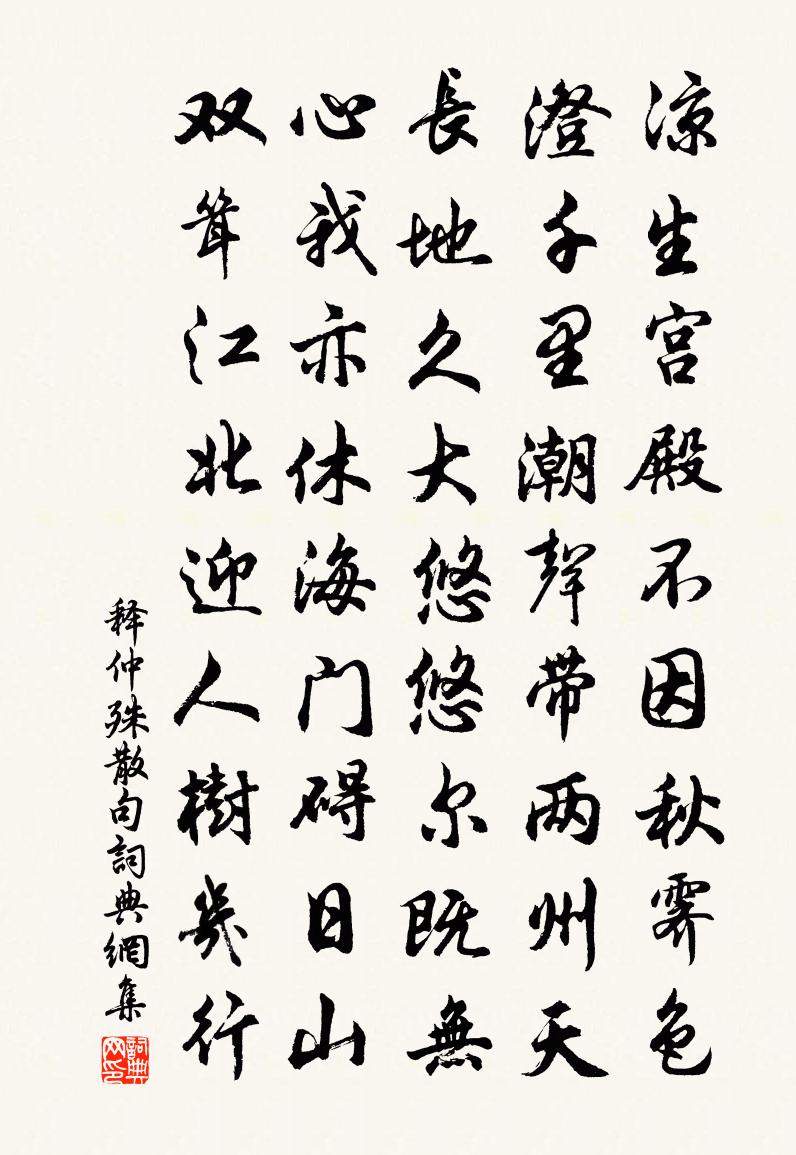 凉生宫殿不因秋霽色
澄千里潮聲带两州天
長地久大悠悠尔既無
心我亦休海门碍日山
双耸江北迎人樹幾行
释仲殊散句詞典網集
詞典网印